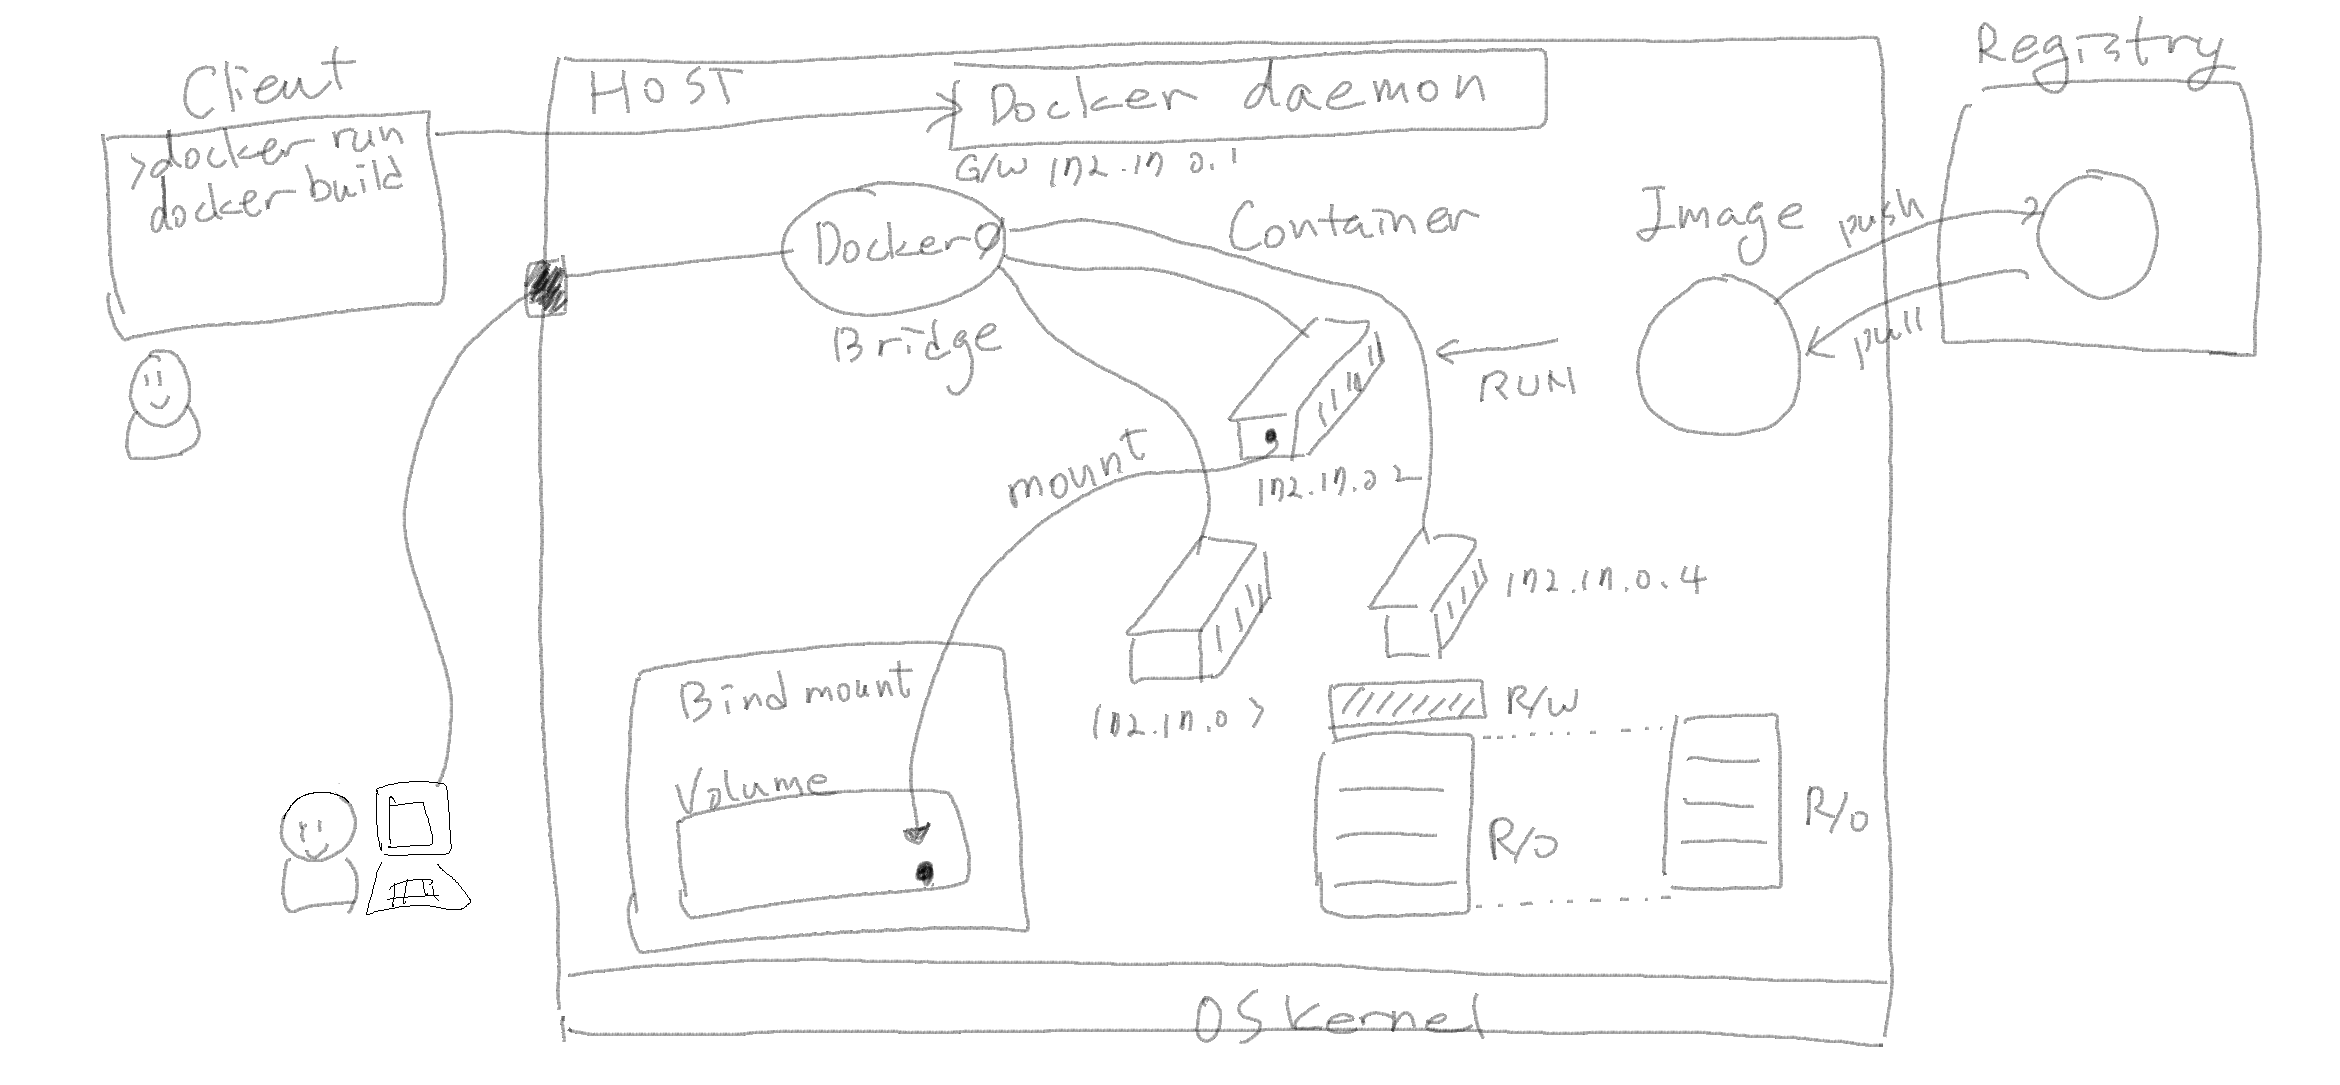 Client
>docker run
docker build
HOST
Docker daemon
G/W 172.17 0.1
Docker0
Bridge
Container
Image
Registry
push
pull
RUN
mount
172.17.0 2
172.17.0.4
172.17.0
Bind mount
Volume
R/W
R/O
R/O
OS Kernel